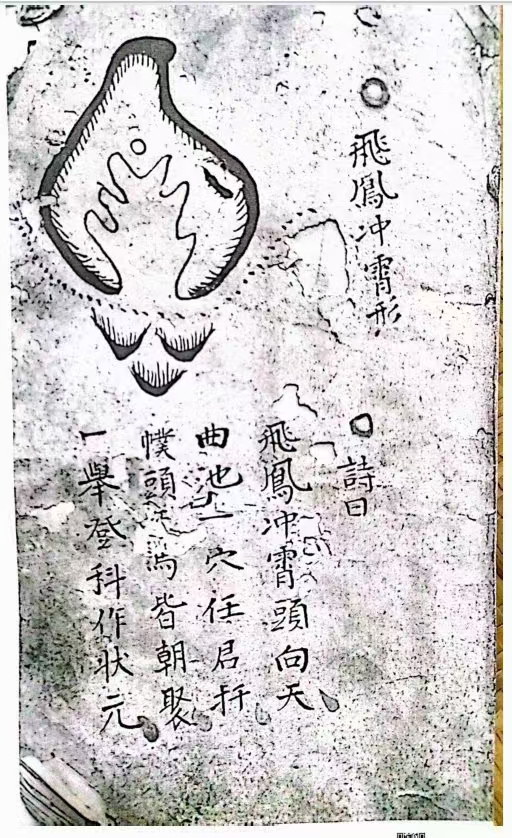 飛鳳冲霄形
詩曰
飛鳳冲霄頭向天
曲池一穴任君扦
幞頭笏皆朝聚
一舉登科作狀元